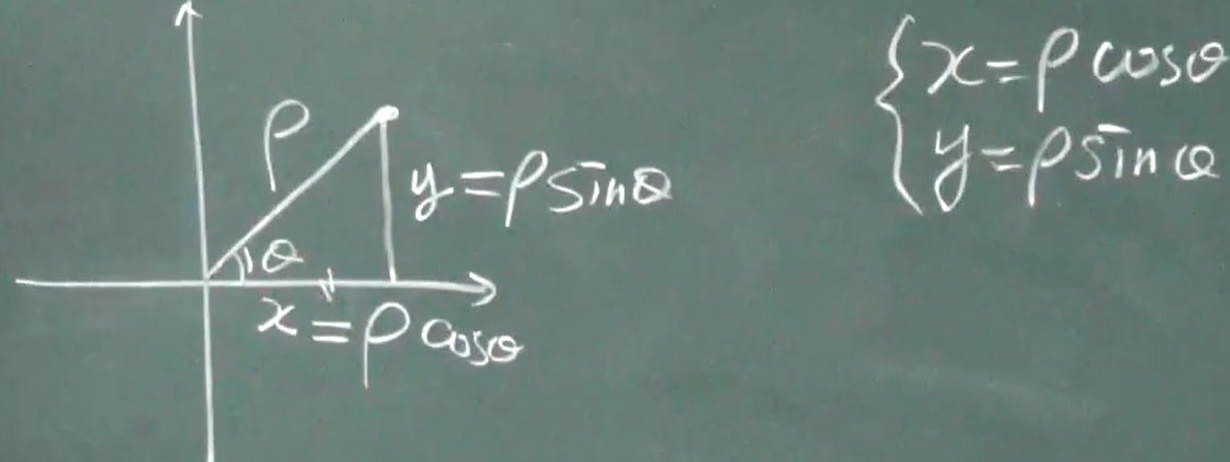 ρ
y=ρsinθ
θ
x=ρcosθ
{x=ρcosθ
y=ρsinθ